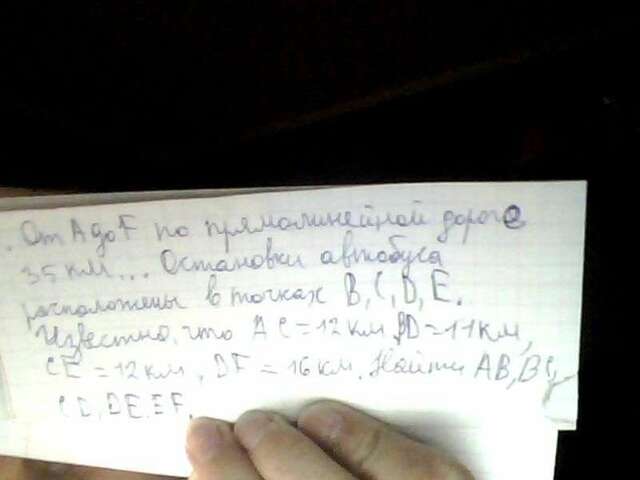 . От А до F по прямолинейной дороге
35 км... Остановки автобуса
расположены в точках B, C, D, E.
Известно, что AC = 12 км, BD = 11 км,
CE = 12 км, DF = 16 км. Найти AB, BC,
CD, DE, EF.